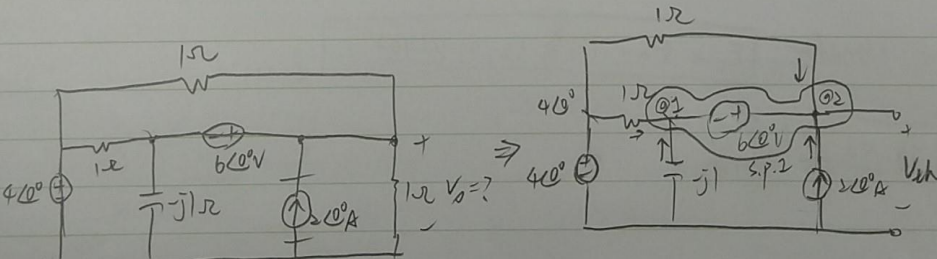 1Ω
1Ω
6∠0°V
+
4∠0°
-j1Ω
2∠0°A
1Ω V₀=?
-
⇒
1Ω
4∠0°
1Ω
@1
@2
- +
6∠0°V
s.p.1
4∠0°
-j1
2∠0°A
+
Vth
-